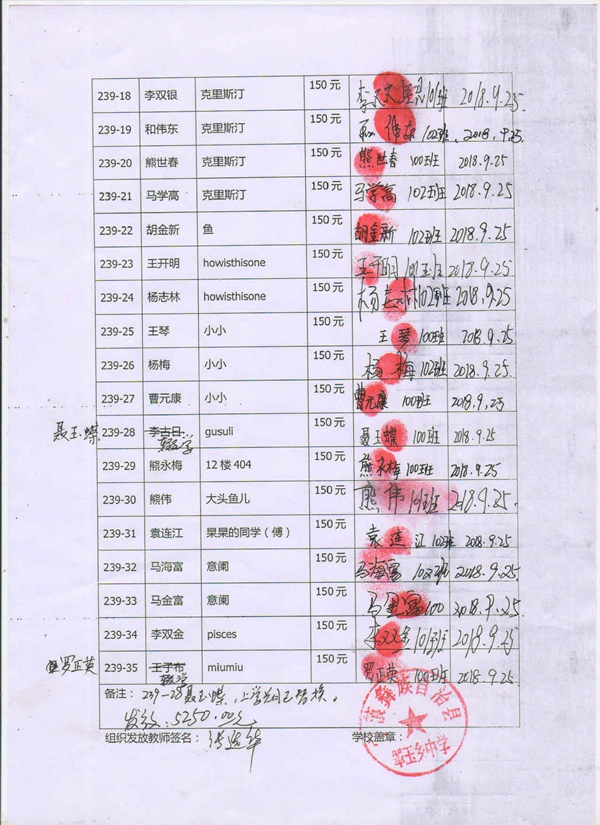 239-18 李双银 克里斯汀 150元 101班 2018.9.25
239-19 和伟东 克里斯汀 150元 和伟东 102班. 2018.9.25
239-20 熊世春 克里斯汀 150元 熊世春 100班 2018.9.25
239-21 马学高 克里斯汀 150元 马学高 102班 2018.9.25
239-22 胡金新 鱼 150元 胡金新 102班 2018.9.25
239-23 王开明 howisthisone 150元 王开明 101班 2018.9.25
239-24 杨志林 howisthisone 150元 杨志林 102班 2018.9.25
239-25 王琴 小小 150元 王琴 100班 2018.9.25
239-26 杨梅 小小 150元 杨梅 102班 2018.9.25
239-27 曹元康 小小 150元 曹元康 100班 2018.9.25
聂玉蝶 239-28 李吉日 辍学 gusuli 150元 聂玉蝶 100班 2018.9.25
239-29 熊永梅 12楼404 150元 熊永梅 100班 2018.9.25
239-30 熊伟 大头鱼儿 150元 熊伟 101班 2018.9.25
239-31 袁连江 杲杲的同学(傅) 150元 袁连江 102班 2018.9.25
239-32 马海富 意阑 150元 马海富 102班 2018.9.25
239-33 马金富 意阑 150元 马金富 100 2018.9.25
239-34 李双金 pisces 150元 李双金 101班 2018.9.25
罗正英 239-35 王子布 辍学 miumiu 150元 罗正英 100班 2018.9.25
备注: 239-28聂玉蝶,上学期已替换。
发放:5250.00元
组织发放教师签名: 学校盖章:
蒗彝族自治县